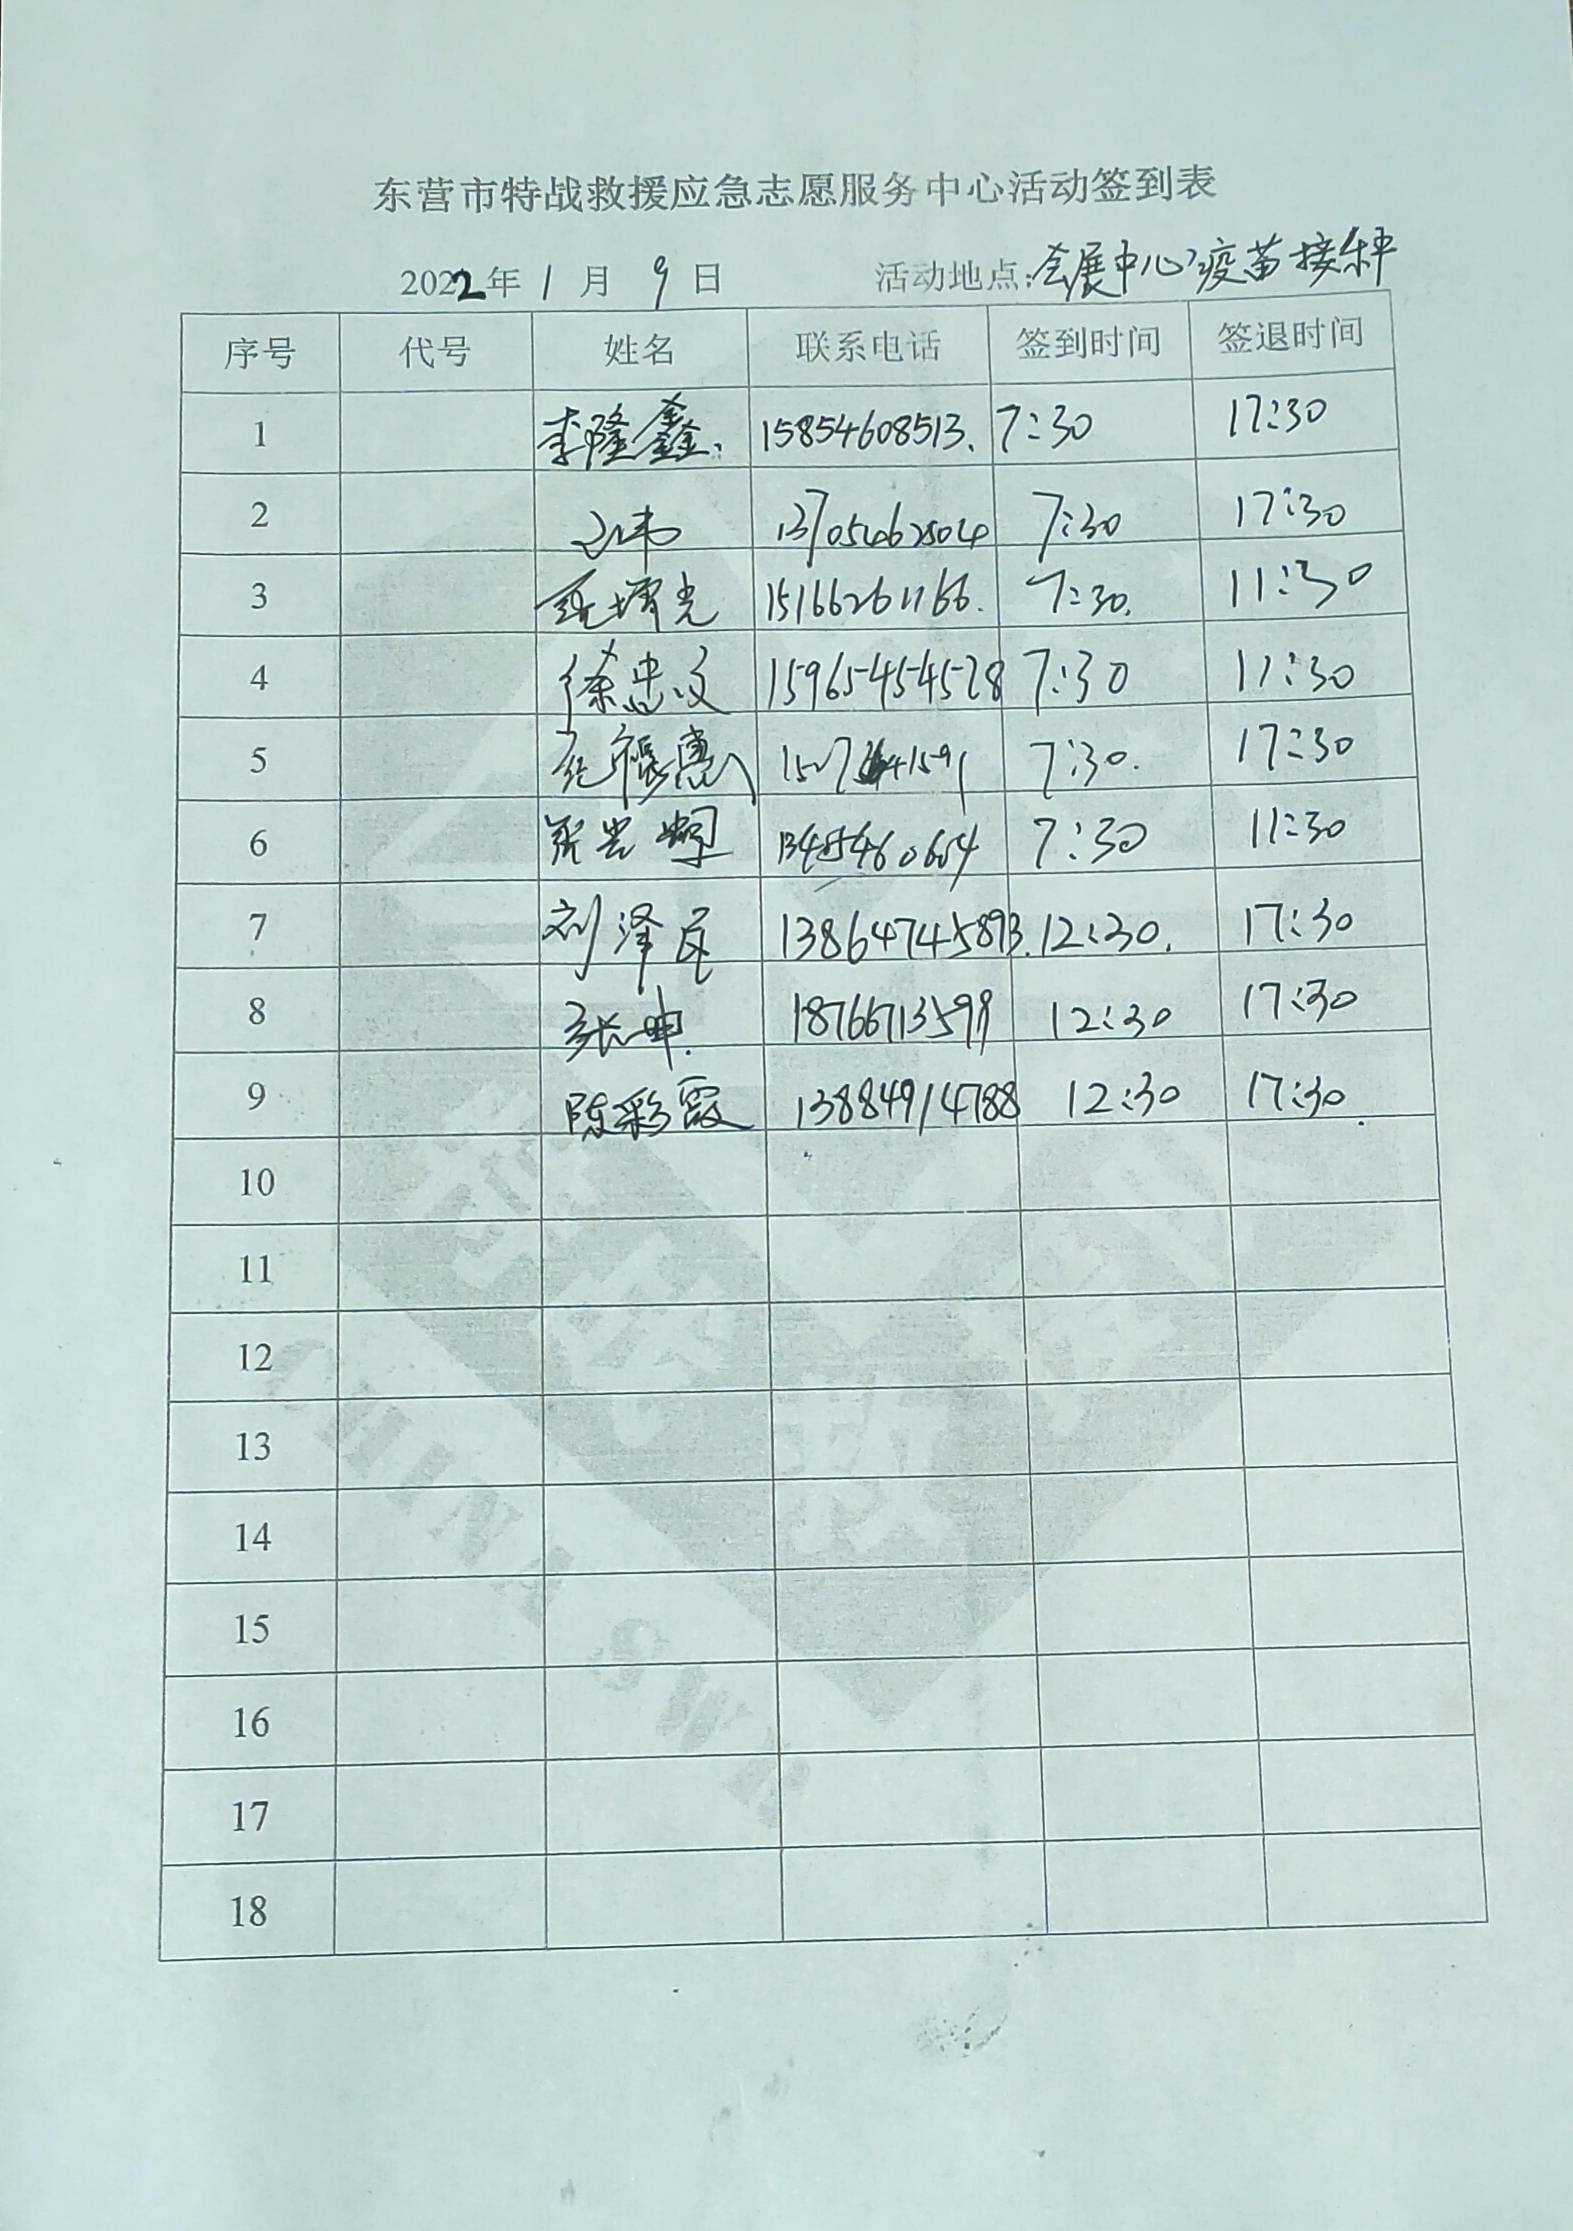 东营市特战救援应急志愿服务中心活动签到表
2022年1月9日 活动地点:会展中心疫苗接种
序号 代号 姓名 联系电话 签到时间 签退时间
1 李隆鑫. 15854608513. 7:30 17:30
2 7:30 17:30
3 15166261166. 7:30. 11:30
4 徐忠义 15965454528 7:30 11:30
5 7:30. 17:30
6 7:30 11:30
7 刘泽民 13864745893. 12:30. 17:30
8 张坤. 18766713598 12:30 17:30
9 陈彩霞 13884914788 12:30 17:30.
10
11
12
13
14
15
16
17
18
CHINA SWR